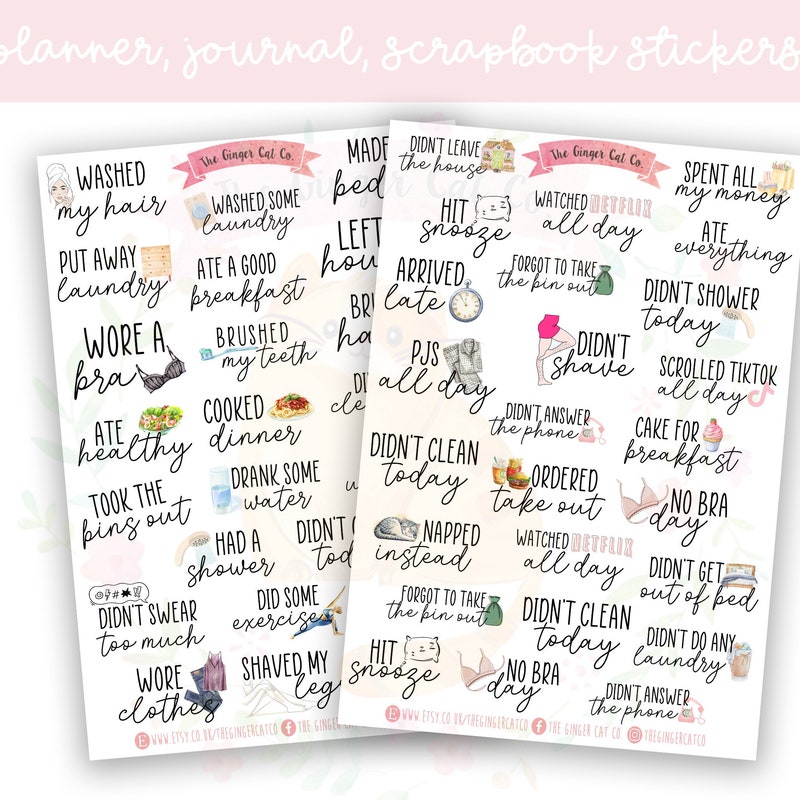 planner, journal, scrapbook stickers
The Ginger Cat Co.
WASHED
my hair
WASHED SOME
laundry
MADE
bed
PUT AWAY
laundry
ATE A GOOD
breakfast
LEFT
WORE A
bra
BRUSHED
my teeth
ATE
healthy
COOKED
dinner
TOOK THE
bins out
DRANK SOME
water
HAD A
shower
DIDN'T
@$#*!
DIDN'T SWEAR
too much
DID SOME
exercise
WORE
clothes
SHAVED MY
leg
WWW.ETSY.CO.UK/THEGINGERCATCO
THE GINGER CAT CO.
The Ginger Cat Co.
DIDN'T LEAVE
the house
SPENT ALL
my money
HIT
snooze
WATCHED NETFLIX
all day
ATE
everything
ARRIVED
late
FORGOT TO TAKE
the bin out
DIDN'T SHOWER
today
PJS
all day
DIDN'T
shave
SCROLLED TIKTOK
all day
DIDN'T ANSWER
the phone
CAKE FOR
breakfast
DIDN'T CLEAN
today
ORDERED
take out
NO BRA
day
NAPPED
instead
WATCHED NETFLIX
all day
DIDN'T GET
out of bed
FORGOT TO TAKE
the bin out
DIDN'T CLEAN
today
DIDN'T DO ANY
laundry
HIT
snooze
NO BRA
day
DIDN'T ANSWER
the phone
E WWW.ETSY.CO.UK/THEGINGERCATCO f THE GINGER CAT CO. THEGINGERCATCO